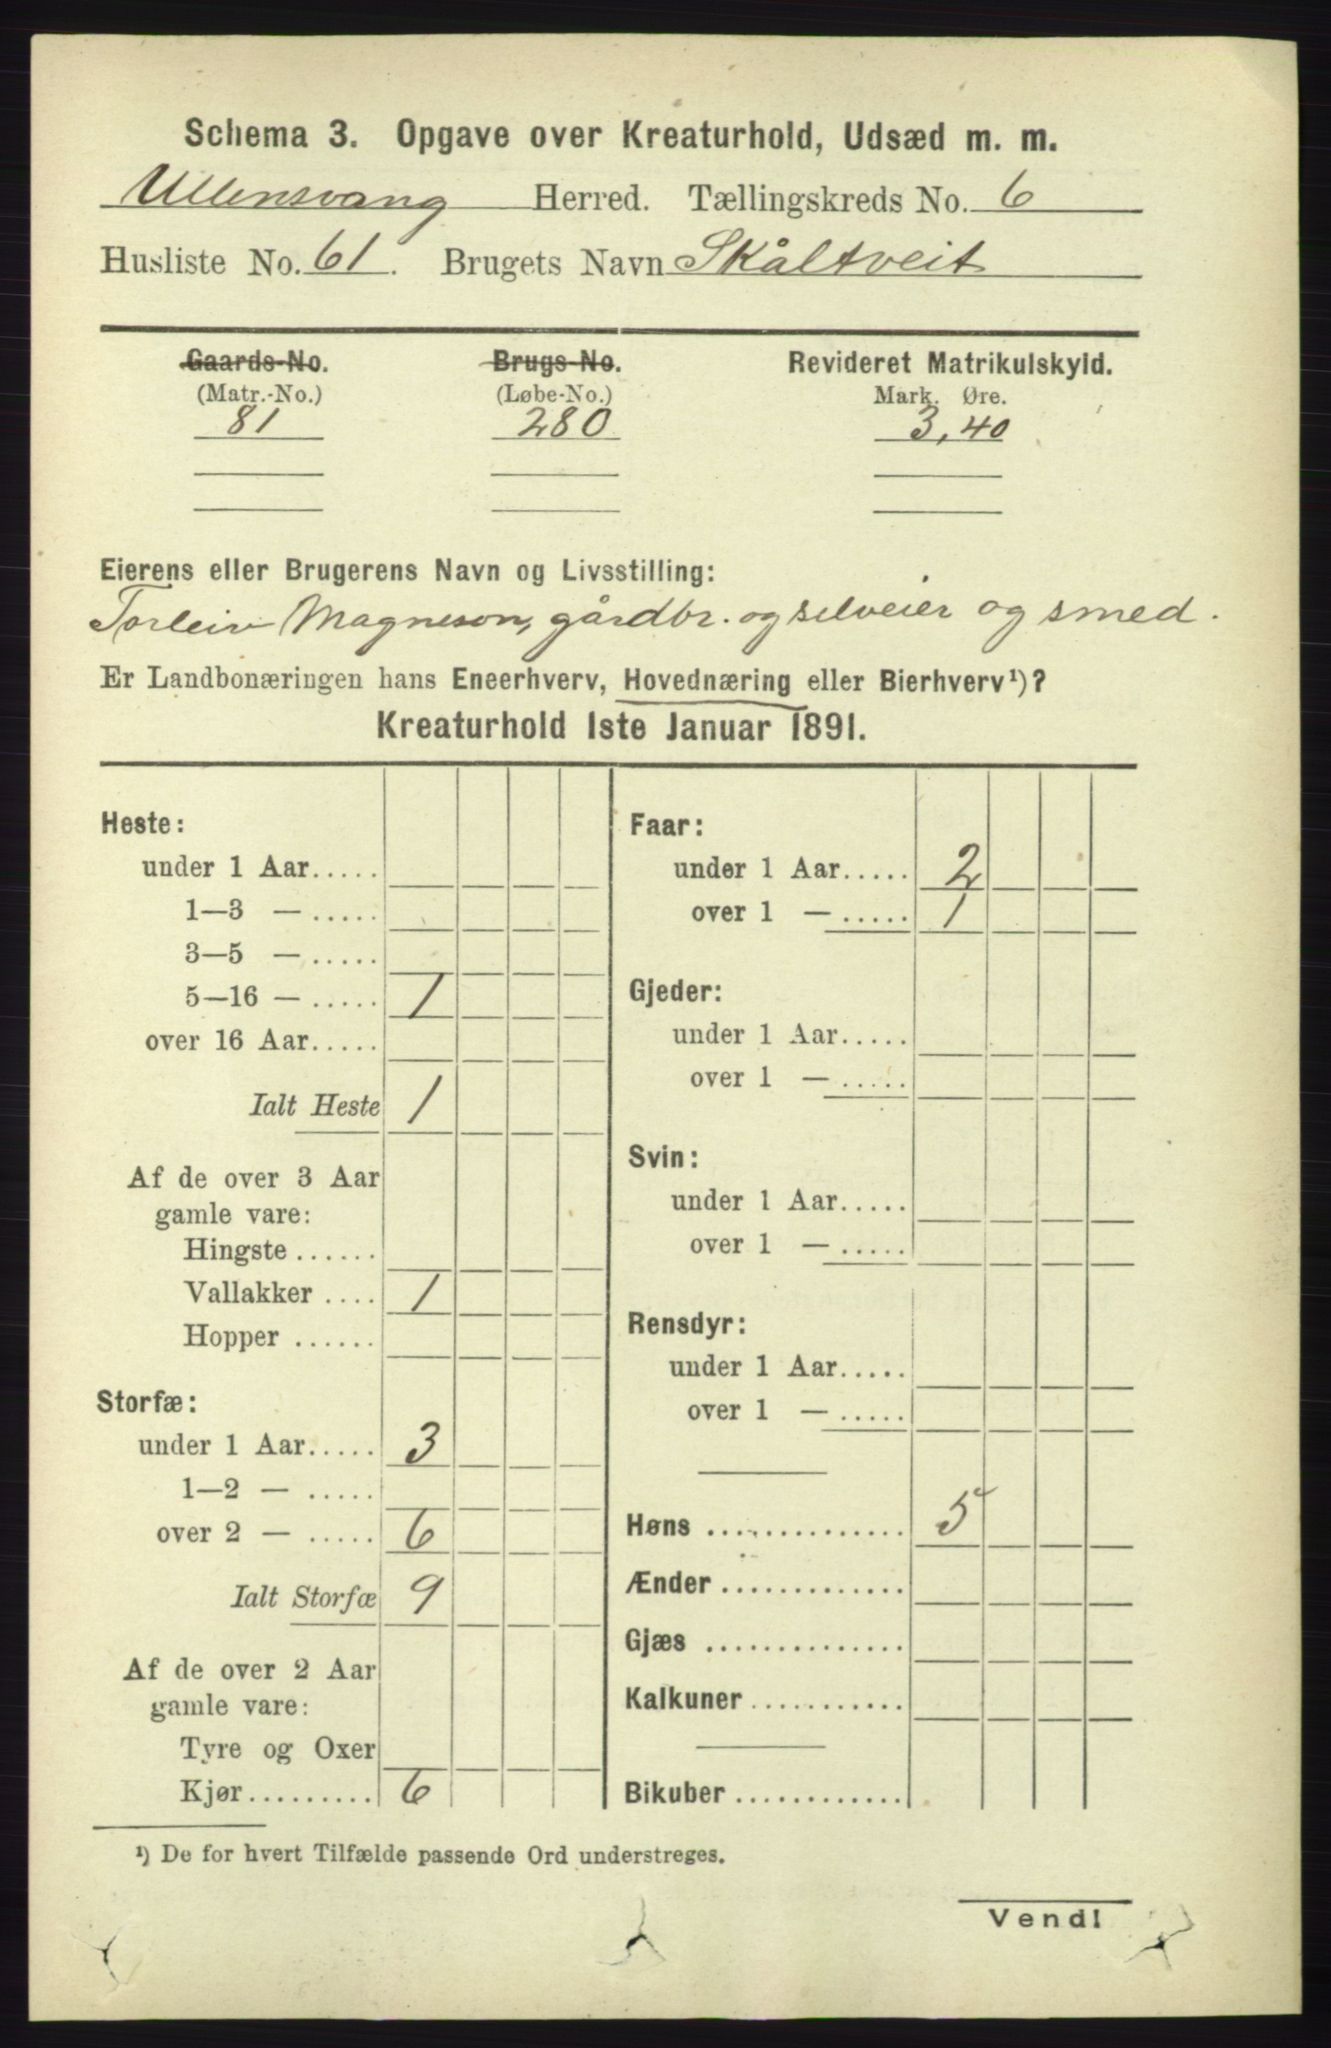 Schema 3. Opgave over Kreaturhold, Udsæd m. m.
Ullensvang Herred. Tællingskreds No. 6
Husliste No. 61. Brugets Navn Skåltveit
Gaards-No. Brugs-No. Revideret Matrikulskyld.
(Matr.-No.) (Løbe-No.) Mark. Øre.
81 280 3,40
Eierens eller Brugerens Navn og Livsstilling:
Torleiv Magneson, gårdbr. og selveier og smed.
Er Landbonæringen hans Eneerhverv, Hovednæring eller Bierhverv¹)?
Kreaturhold 1ste Januar 1891.
Heste:
under 1 Aar.....
1—3 — .....
3—5 — .....
5—16 — ..... 1
over 16 Aar.....
Ialt Heste 1
Af de over 3 Aar
gamle vare:
Hingste ......
Vallakker .... 1
Hopper ......
Storfæ:
under 1 Aar..... 3
1—2 — .....
over 2 — ..... 6
Ialt Storfæ 9
Af de over 2 Aar
gamle vare:
Tyre og Oxer
Kjør......... 6
Faar:
under 1 Aar..... 2
over 1 — ..... 1
Gjeder:
under 1 Aar.....
over 1 — .....
Svin:
under 1 Aar.....
over 1 — .....
Rensdyr:
under 1 Aar.....
over 1 — .....
Høns .............. 5
Ænder .............
Gjæs ..............
Kalkuner ...........
Bikuber .............
¹) De for hvert Tilfælde passende Ord understreges.
Vend!